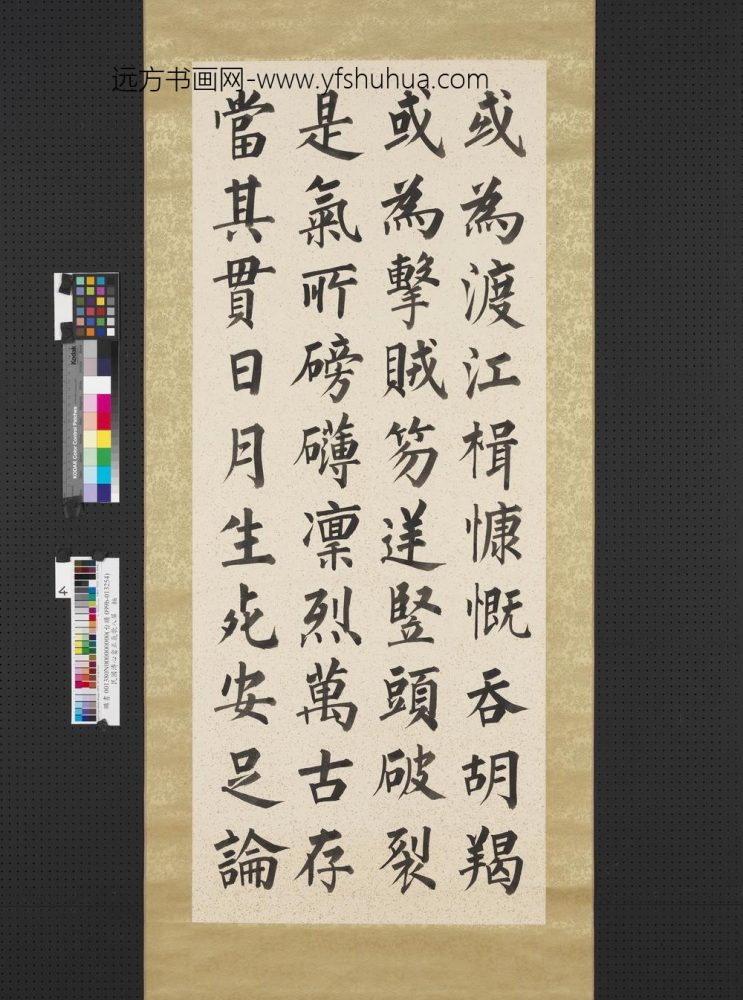 远方书画网-www.yfshuhua.com
或為渡江楫慷慨吞胡羯
或為擊賊笏逆豎頭破裂
是氣所磅礴凜烈萬古存
當其貫日月生死安足論
Kodak
KODAK Color Control Patches
4